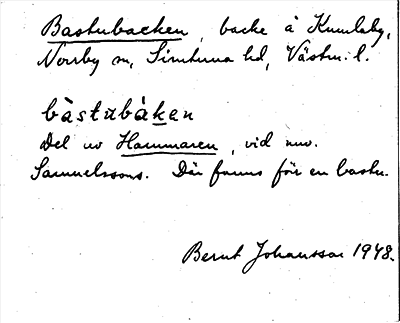 Bastubacken, backe å Kumlaby,
Norrby sn, Simtuna hd, Västm. l.
bàstubàken
Del av Hammaren, vid nuv.
Samuelssons. Där fanns förr en bastu.
Bernt Johansson 1948.